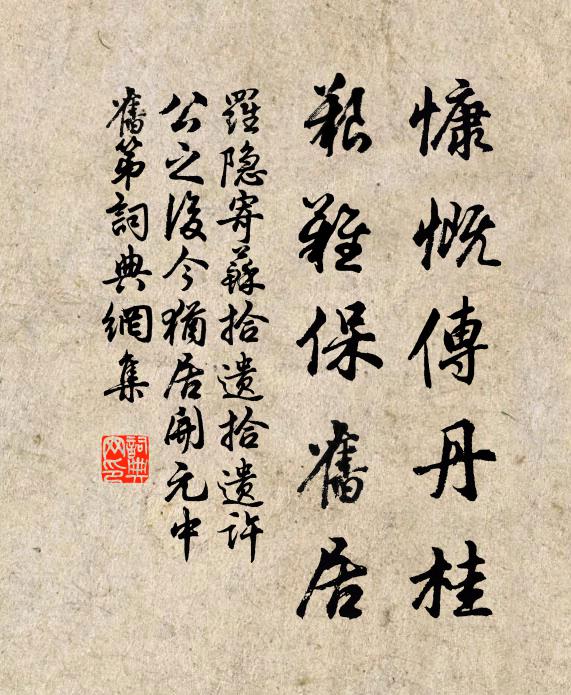 慷慨傳丹桂
艱難保舊居
羅隐寄蘇拾遺拾遺許
公之後今猶居開元中
舊第詞典網集
詞典
网印